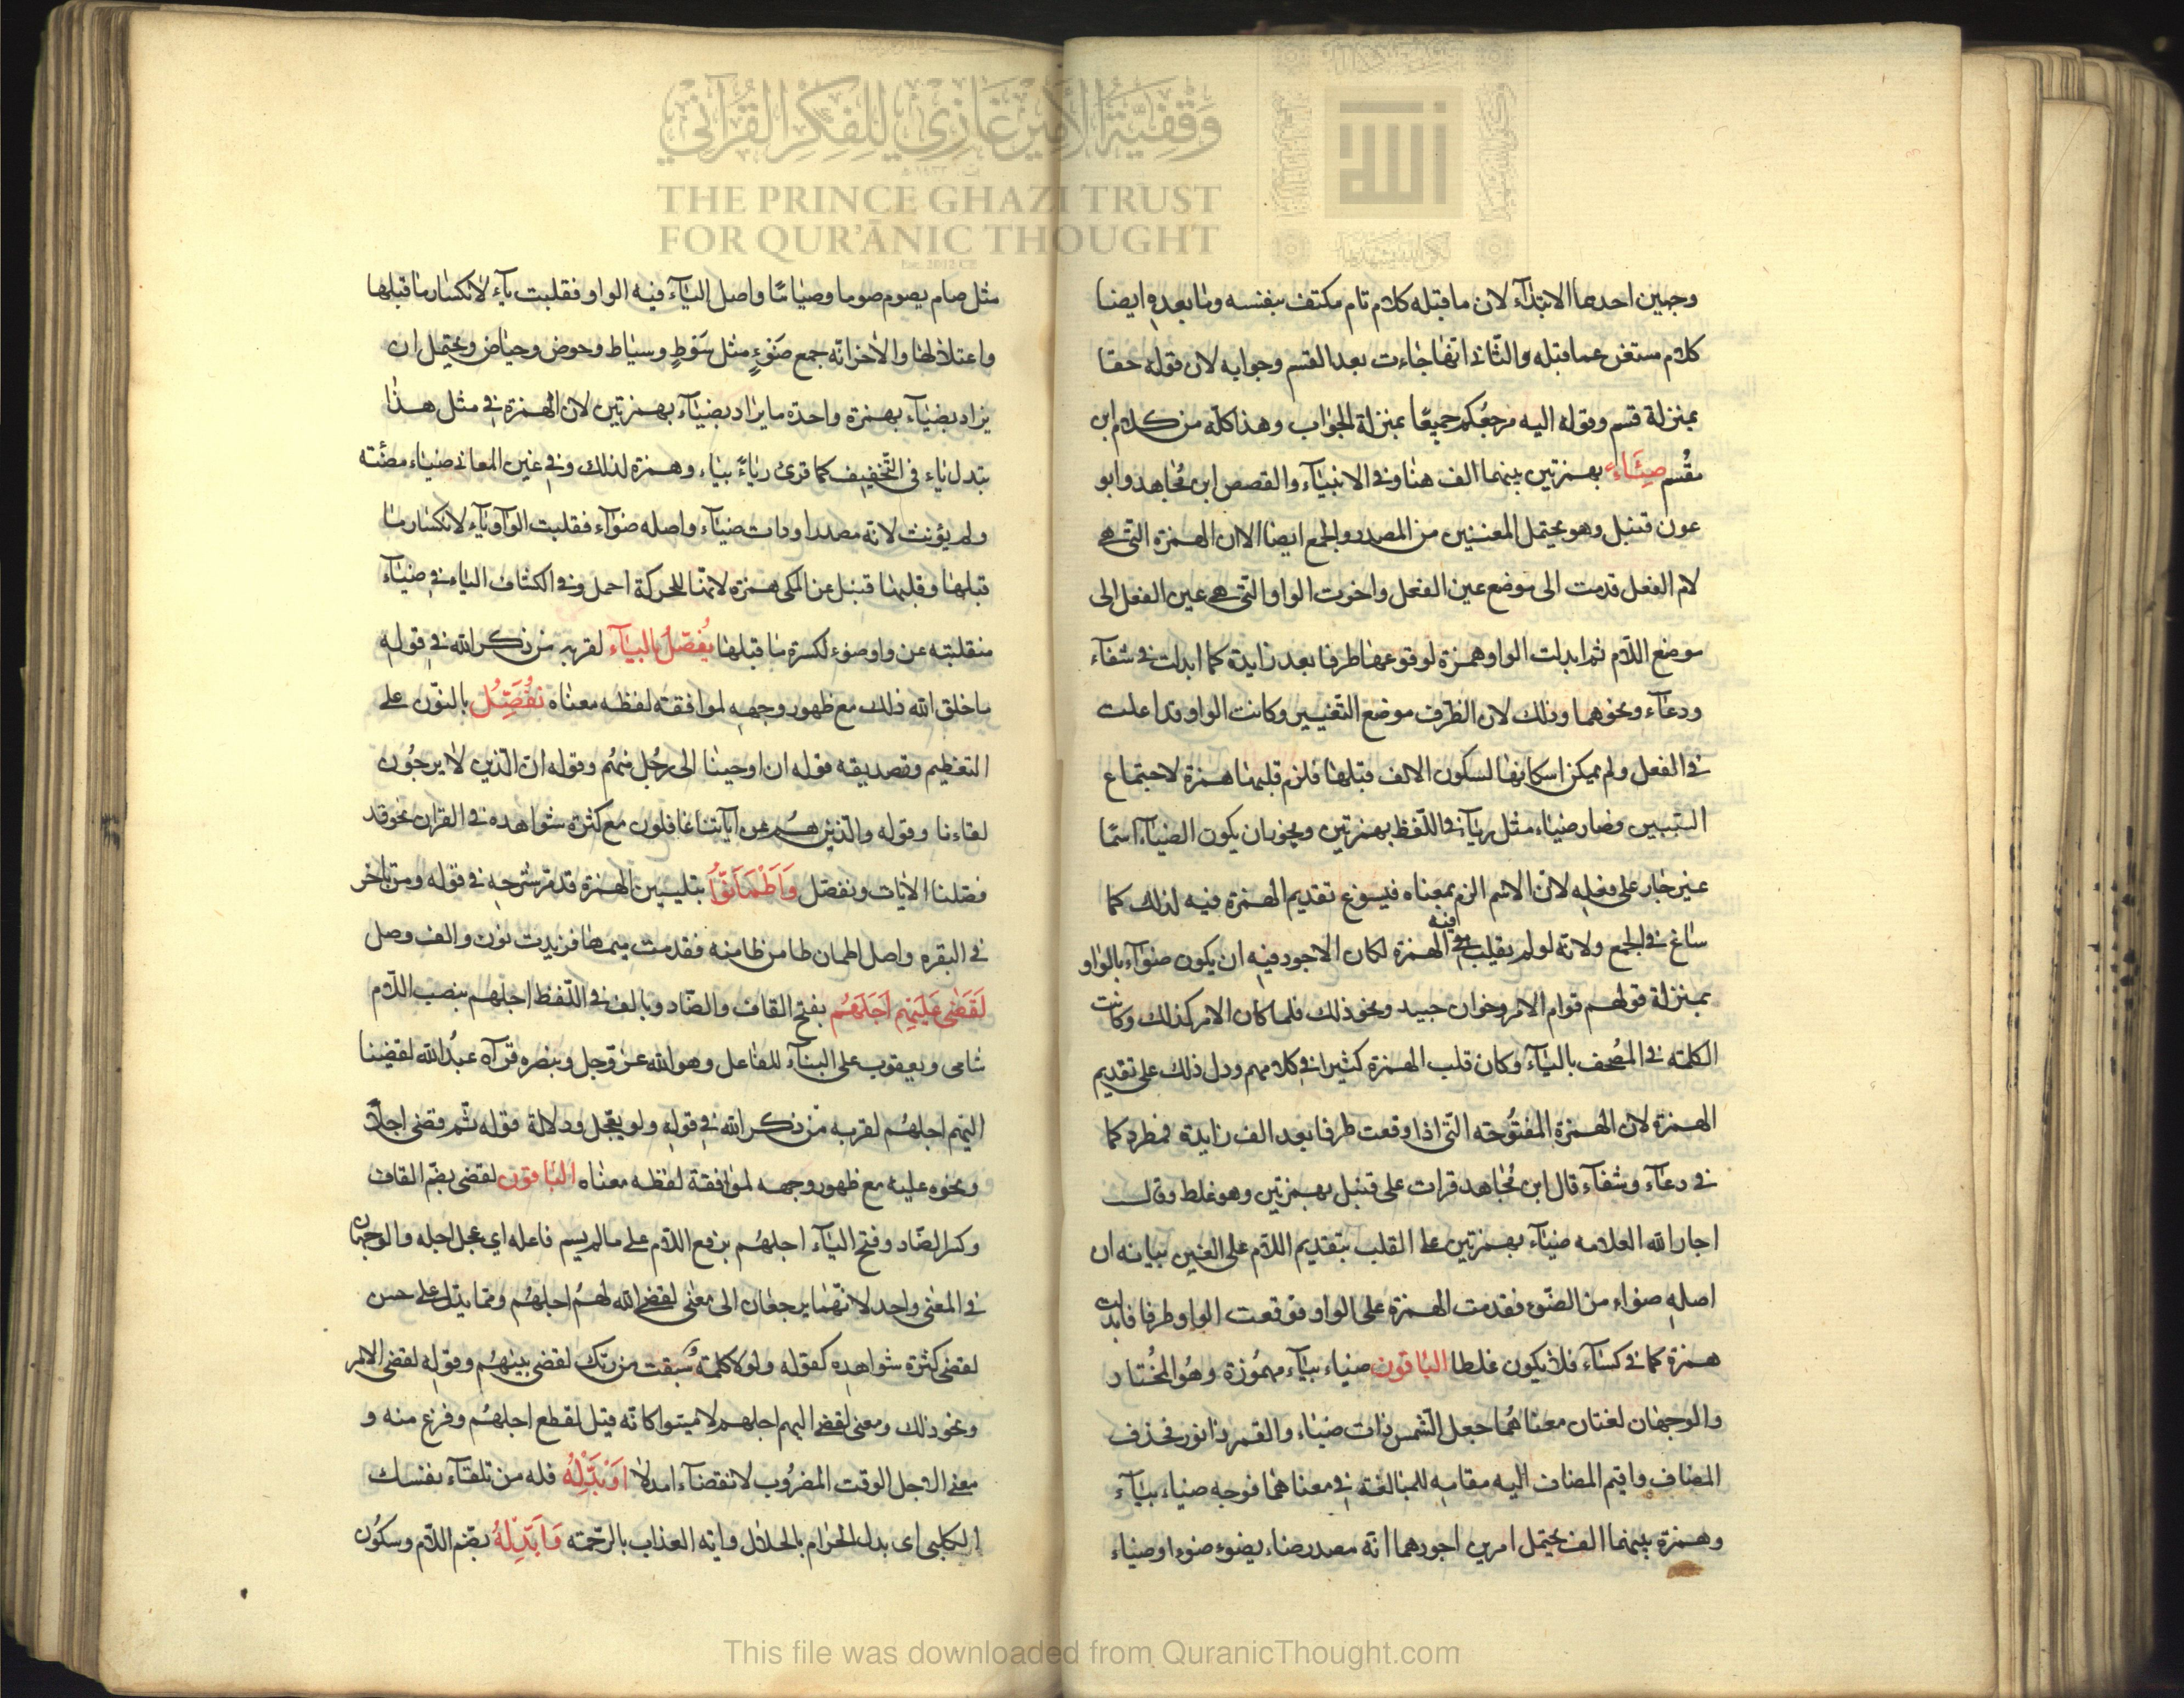 وقفية الأمير غازي للفكر القرآني
THE PRINCE GHAZI TRUST
FOR QUR'ĀNIC THOUGHT
وجهين احدهما الابتدآء لان ما قبله كلام تام مكتف بنفسه وما بعده ايضا
كلام مستغن عما قبله والثاني انها جاءت بعد القسم وجوابه لان قوله حقا
بمنزلة قسم وقوله اليه مرجعكم جميعا بمنزلة الجواب وهذا كله من كلام ابن
مقسم ضئاء بهمزتين بينهما الف هنا وفي الانبيآء والقصص ابن مجاهد وابو
عون قنبل وهو يحتمل المعنيين من المصدر والجمع ايضا الا ان الهمزة التي هي
لام الفعل قدمت الى موضع عين الفعل واخرت الواو التي هي عين الفعل الى
موضع اللام ثم ابدلت الواو همزة لوقوعها طرفا بعد زايدة كما ابدلت في شفآء
ودعآء ونحوهما وذلك لان الطرف موضع التغيير وكانت الواو قد اعلت
في الفعل ولم يمكن اسكانها لسكون الالف قبلها فلزم قلبها همزة لاجتماع
السببين وصار ضياء مثل ريآء في اللفظ بهمزتين ويجوز ان يكون الضيآء اسما
غير جار على فعله لان الاسم الزم بمعناه فيسوغ تقديم الهمزة فيه لذلك كما
ساغ في الجمع ولانه لو لم يقلب فيه الهمزة لكان الاجود فيه ان يكون ضوآء بالواو
بمنزلة قولهم قوام الامر وخوان جيد ونحو ذلك فلما كان الامر كذلك وكانت
الكلمة في المصحف باليآء وكان قلب الهمزة كثيرا في كلامهم ودل ذلك على تقديم
الهمزة لان الهمزة المفتوحة التي اذا وقعت طرفا بعد الف زايدة فمطرد كما
في دعآء وشفآء قال ابن مجاهد قرات على قنبل بهمزتين وهو غلط وقال
اجار الله العلامه ضيآء بهمزتين على القلب بتقديم اللام على العين بيانه ان
اصله ضواء من الضوء فقدمت الهمزة على الواو فوقعت الواو طرفا فابدلت
همزة كما في كسآء فلا يكون غلطا الباقون ضياء بيآء مهموزة وهو المختار
والوجهان لغتان معناهما جعل الشمس ذات ضياء والقمر ذا نور فحذف
المضاف واقيم المضاف اليه مقامه للمبالغة في معناهما فوجه ضياء بيآء
وهمزة بينهما الف يحتمل امرين اجودهما انه مصدر ضاء يضوء ضوءا وضياء
مثل صام يصوم صوما وصياما واصل اليآء فيه الواو فقلبت يآء لانكسار ما قبلها
واعتلالها والاخر انه جمع ضوء مثل سوط وسياط وحوض وحياض ويحتمل ان
يراد بضيآء بهمزة واحدة ما يراد بضيآء بهمزتين لان الهمزة في مثل هذا
تبدل ياء في التخفيف كما قرئ رياء بياء وهمزة لذلك وفي عين المعاني ضياء مضئة
ولم يؤنث لانه مصدر او ذات ضيآء واصله ضوآء فقلبت الواو يآء لانكسار ما
قبلها وقلبها قنبل عن المكي همزة لانها للحركة احمل وفي الكشاف الياء في ضيآء
منقلبة عن واو ضوء لكسرة ما قبلها يفصل باليآء لقربه من ذكر الله في قوله
ما خلق الله ذلك مع ظهور وجهه لموافقة لفظه معناه نفصل بالنون على
التعظيم وتصديقه قوله ان اوحينا الى رجل منهم وقوله ان الذين لا يرجون
لقاءنا وقوله والذين هم عن آياتنا غافلون مع كثرة شواهده في القران نحو قد
فصلنا الايات ونفصل واطمانوا بتليين الهمزة قد مر شرحه في قوله ومن تاخر
في البقره واصل اطمان طامن ظامنه فقدمت ميمها فزيدت نون والف وصل
لقضى عليهم اجلهم بفتح القاف والضاد وبالف في اللفظ اجلهم بنصب اللام
شامى ويعقوب على البنآء للفاعل وهو الله عز وجل وينصره قرآه عبد الله لقضينا
اليهم اجلهم لقربه من ذكر الله في قوله ولو يعجل ودلالة قوله ثم قضى اجلا
ونحوه عليه مع ظهور وجهه لموافقة لفظه معناه الباقون لقضي بضم القاف
وكسر الضاد وفتح اليآء اجلهم برفع اللام على ما لم يسم فاعله اى عجل اجله والوجهان
في المعنى واحد لانهما يرجعان الى معنى لقضى الله لهم اجلهم ومما يدل على حسن
لقضى كثرة شواهده كقوله ولولا كلمة سبقت من ربك لقضى بينهم وقوله لقضى الامر
ونحو ذلك ومعنى لقضى اليهم اجلهم لاميتوا كانه قيل لقطع اجلهم وفرغ منه و
معنى الاجل الوقت المضروب لانقضآء امدلا او بدله قله من تلقآء نفسك
الكلبي اى بدل الحرام بالحلال واية العذاب بالرحمة وابدله بضم اللام وسكون
This file was downloaded from QuranicThought.com